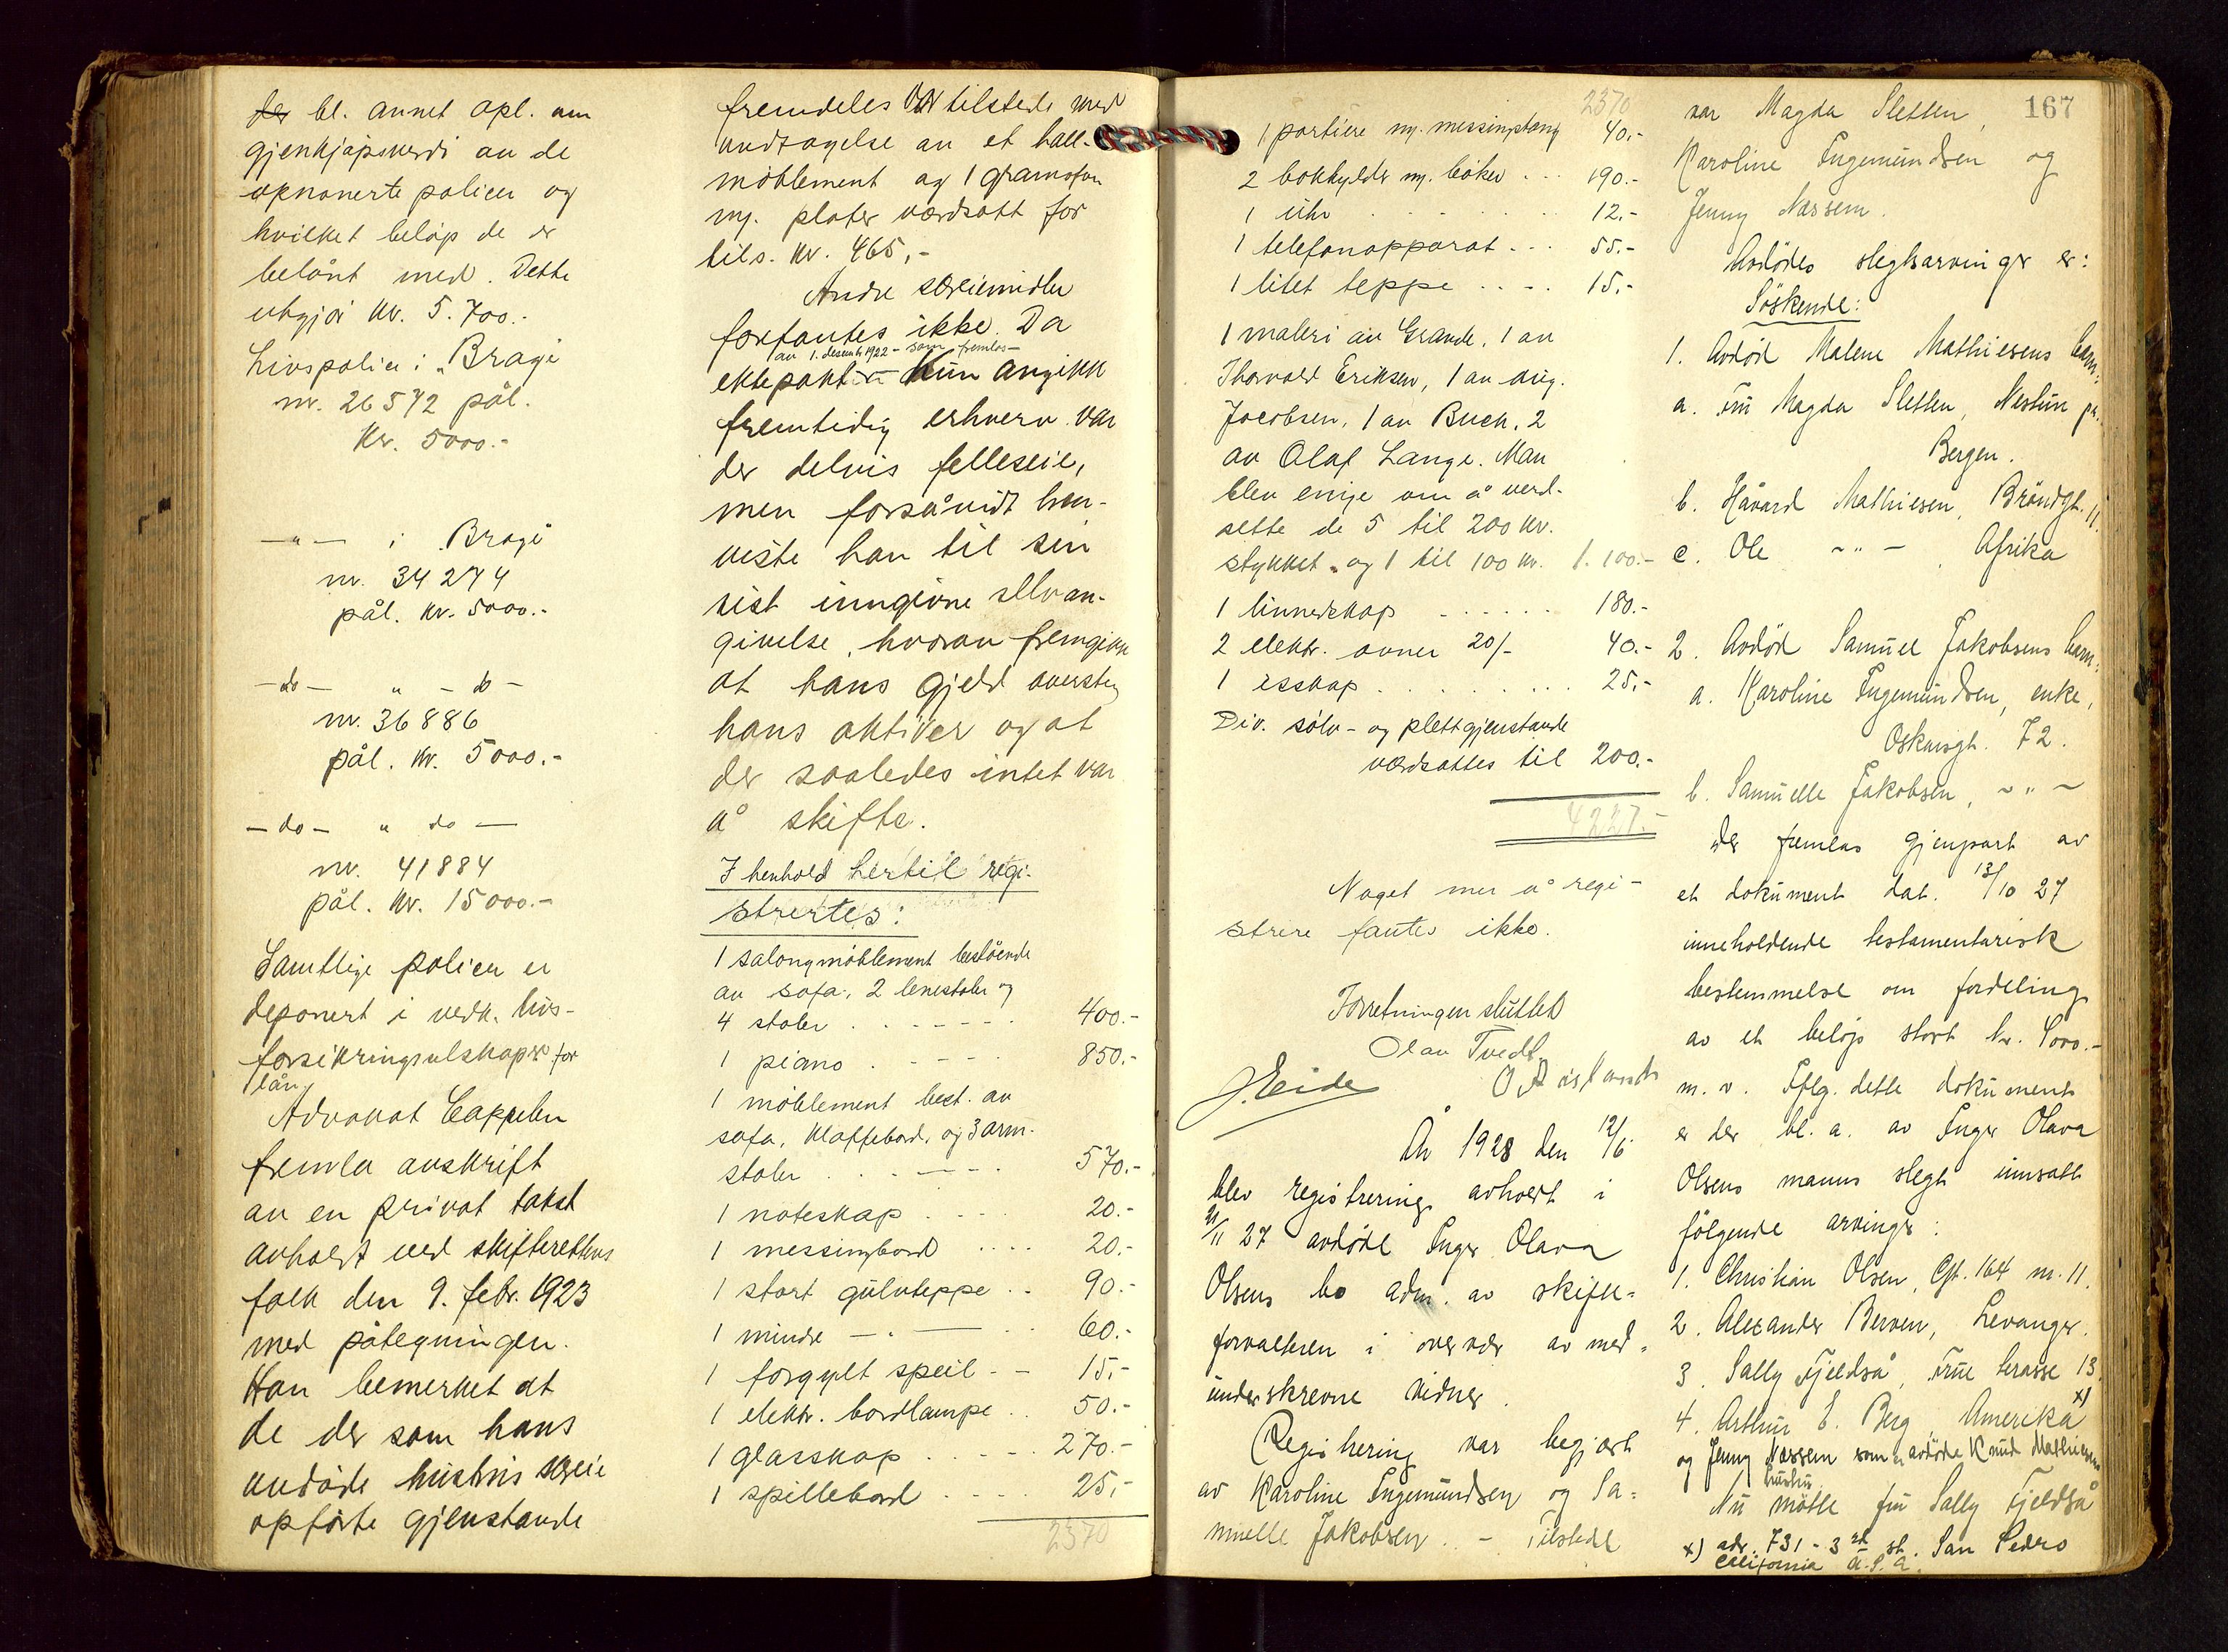 der bl. annet opl. om
gjenkjøpsverdi av de
opnonerte policer og
hvilket beløp de er
belånt med. Dette
utgjør kr. 5.700.-
Livspolice i "Brage
nr. 26572 pål.
kr. 5000.-
—"— i Brage
nr. 34274
pål. kr. 5000.-
—do— " —do—
nr. 36886
pål. kr. 5000.-
—do— " do—
nr. 41884
pål. kr. 15000.-
Samtlige policer er
deponert i vedk. livs-
forsikringselskaper for
lån.
Advokat Cappelen
fremla avskrift
av en privat takst
avholdt ved skifterettens
folk den 9. febr. 1923
med påtegningen.
Han bemerket at
de der som hans
avdøde hustrus særeie
opførte gjenstande
fremdeles var tilstede med
undtagelse av et hall-
møblement og 1 gramofon
m. plater værdsatt for
tils. kr. 465,-
Andre særeiemidler
forfantes ikke. Da
av 1. desemb. 1922 - som fremlas -
ektepakten kun angikk
fremtidig erhverv var
der delvis felleseie,
men forsåvidt hen-
viste han til sin
sist inngivne selvan-
givelse, hvorav fremgikk
at hans gjeld oversteg
hans aktiver og at
der saaledes intet var
å skifte.
I henhold hertil regi-
strertes:
1 salongmøblement bestående
av sofa, 2 lenestoler og
4 stoler . . . . . . . 400.-
1 piano . - - - - 850.-
1 møblement best. av
sofa, klaffebord, og 3 arm-
stoler . . . - - - . 570.-
1 noteskap . . - . . 20.-
1 messingbord . . . . 20.-
1 stort gulvteppe . . 90.-
1 mindre —"— . . 60.-
1 forgylt speil - - 15,-
1 elektr. bordlampe . . 50.-
1 glasskap . . - - . 270.-
1 spillebord . - - - . 25,-
2370
2370
1 portiere m. messingstang 40.-
2 bokhylder m. bøker . . . 190.-
1 uhr . . . . . . . 12.-
1 telefonapparat . . . 55.-
1 litet teppe . . - . 15.-
1 maleri av Grande, 1 av
Thorvald Eriksen, 1 av Aug.
Jacobsen, 1 av Buch, 2
av Olaf Lange. Man
blev enige om å verd-
sette de 5 til 200 kr.
stykket og 1 til 100 kr. 1.100.-
1 linnedskap - . . . . . 180.-
2 elektr. ovner 20/- 40.-
1 isskap . . . . . . . . 25.-
Div. sølv- og plettgjenstande
værdsattes til 200.-
4227.-
Noget mer å regi-
strere fantes ikke.
Forretningen sluttet
Olav Tvedt
J. Eide
År 1928 den 12/6
blev registrering avholdt i
21/11 27 avdøde Inger Olava
Olsens bo adm. av skifte-
forvalteren i overvær av med-
underskrevne vidner.
Registrering var begjært
av Karoline Ingemundsen og Sa-
muelle Jakobsen. - Tilstede
167
var Magda Sletten,
Karoline Ingemundsen og
Jenny Nassem.
Avdødes slegtsarvinger er:
Søskende:
1. Avdød Malene Mathiesens barn:
a. Fru Magda Sletten, Nestun pr.
Bergen.
b. Håvard Mathiesen, Brøndgt. 11.
c. Ole ~"— Afrika
2. Avdød Samuel Jakobsens barn:
a. Karoline Ingemundsen, enke,
Oskarsgt. 72.
b. Samuelle Jakobsen, ~"~
Der fremlas gjenpart av
et dokument dat. 13/10 27
inneholdende testamentarisk
bestemmelse om fordeling
av et beløp stort kr. 5000.-
m. v. Iflg. dette dokument
er der bl. a. av Inger Olava
Olsens manns slegt innsatt
følgende arvinger:
1. Christian Olsen, Gt. 164 nr. 11.
2. Alexander Berven, Levanger.
3. Sally Fjeldså, Frue terasse 13.
4. Arthur E. Berg, Amerika x)
og Jenny Nassem som er avdøde Knud Mathiesens
hustru.
Nu møtte fru Sally Fjeldså
x) adr. 731 - 3rd st. San Pedro
California U.S.A.